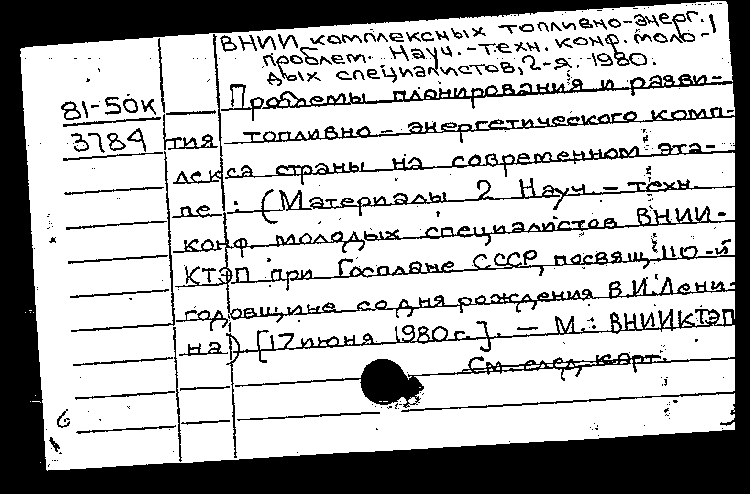 ВНИИ комплексных топливно-энерг.
проблем. Науч.-техн. конф. моло-
дых специалистов, 2-я. 1980.
81-50к
3784
Проблемы планирования и разви-
тия топливно-энергетического комп-
лекса страны на современном эта-
пе: (Материалы 2 Науч.-техн.
конф. молодых специалистов ВНИИ-
КТЭП при Госплане СССР, посвящ. 110-й
годовщине со дня рождения В.И. Лени-
на). [17 июня 1980 г.]. — М.: ВНИИКТЭП
См. след. карт.
6